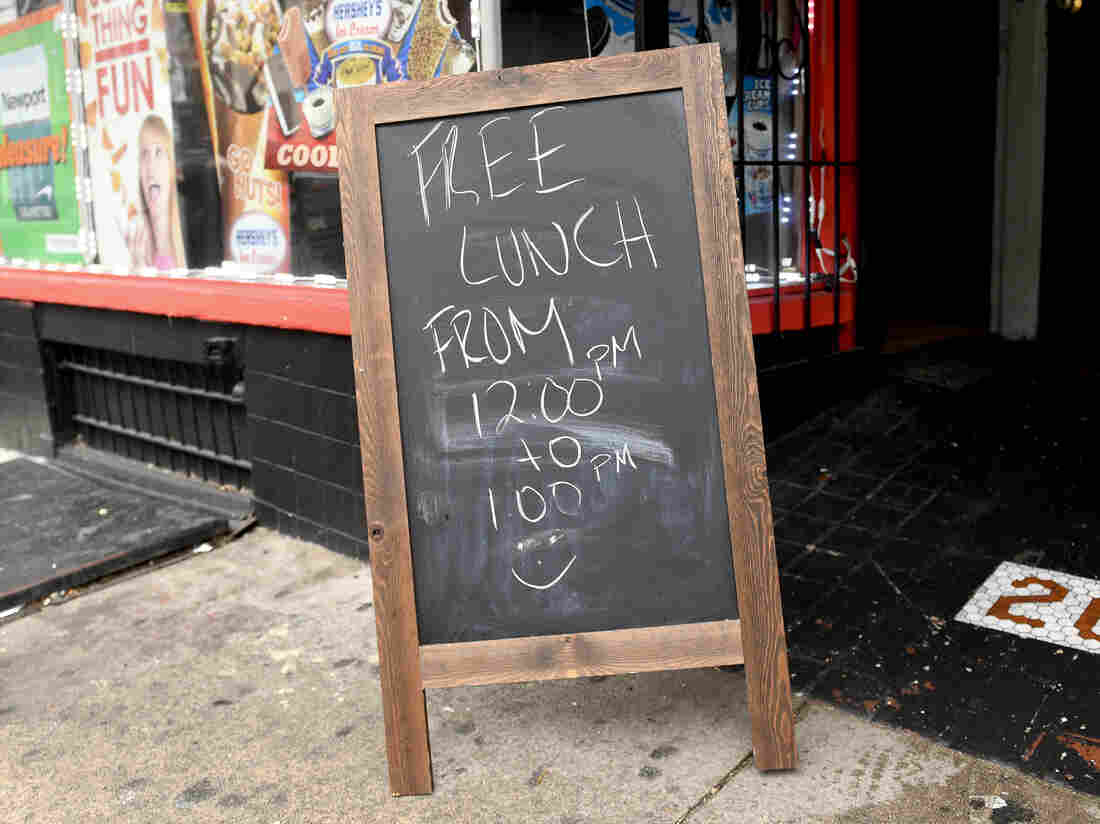 FREE
LUNCH
FROM
12:00 PM
to
1:00 PM
THING
FUN
Newport
pleasure!
GO
NUTS!
HERSHEY'S
Ice Cream
HERSHEY'S
Ice Cream
COOL
ICE
CREAM
CUPS